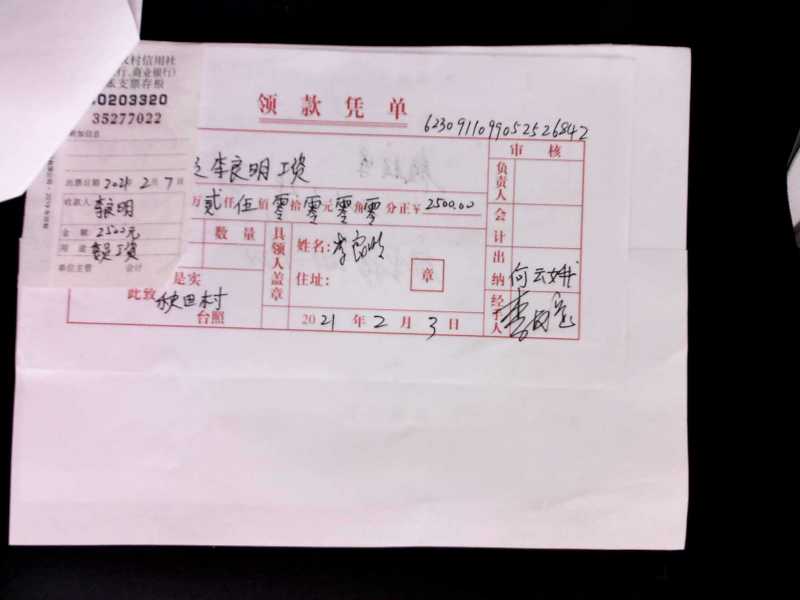 村信用社
行、商业银行)
支票存根
0203320
35277022
附加信息
出票日期 2021 年 2 月 7 日
收款人: 李良明
金 额: 2500元
用 途: 工资
单位主管 会计
领款凭单
6230911099052526842
李良明工资
万贰仟伍佰零拾零元零角零分正¥2500.00
数量
具领人盖章
姓名:
住址:
章
是实
此致 秋田村
台照
2021 年 2 月 3 日
审核
负责人
会计
出纳 何云娥
经手人